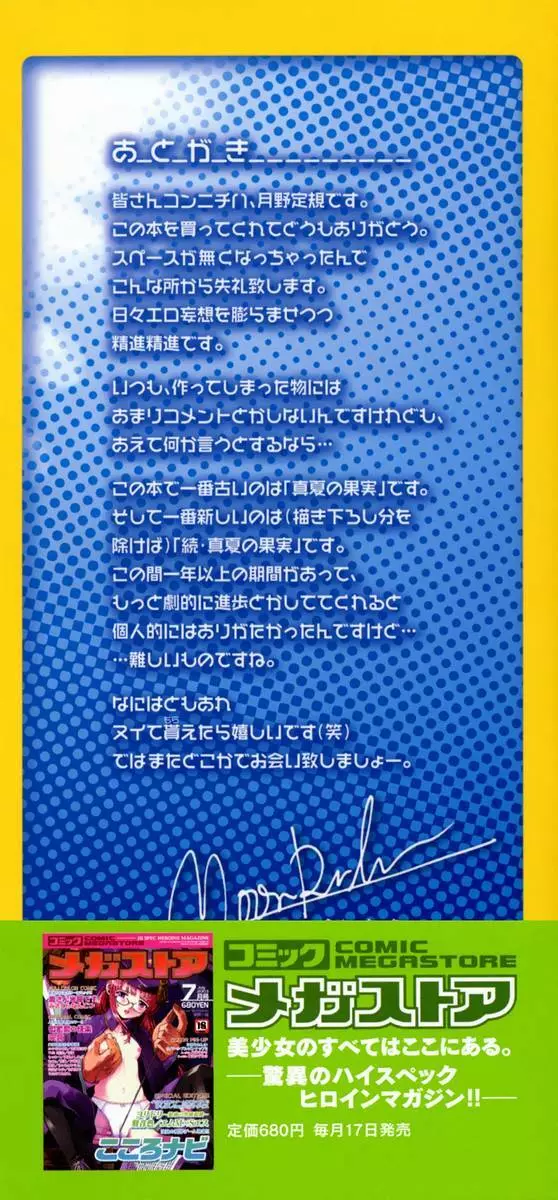 あ_と_が_き_________
皆さんコンニチハ、月野定規です。
この本を買ってくれてどうもありがとう。
スペースが無くなっちゃったんで
こんな所から失礼致します。
日々エロ妄想を膨らませつつ
精進精進です。
いつも、作ってしまった物には
あまりコメントとかしないんですけれども、
あえて何か言うとするなら…
この本で一番古いのは「真夏の果実」です。
そして一番新しいのは(描き下ろし分を
除けば)「続・真夏の果実」です。
この間一年以上の期間があって、
もっと劇的に進歩とかしててくれると
個人的にはありがたかったんですけど…
…難しいものですね。
なにはともあれ
ヌイて貰えたら嬉しいです(笑)
ではまたどこかでお会い致しましょー。
コミック COMIC MEGASTORE
メガストア
美少女のすべてはここにある。
──驚異のハイスペック
ヒロインマガジン!!──
定価680円 毎月17日発売
コミック COMIC MEGASTORE
メガストア
7月号
680YEN
18
こころナビ